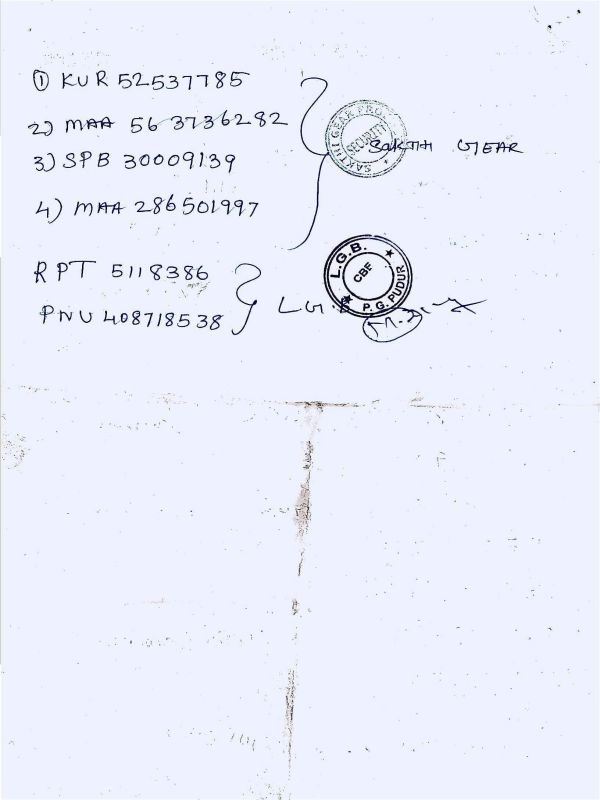 ① KUR 52537785
2) MAA 563736282
3) SPB 30009139
4) MAA 286501997
SAKTHI GEAR PRO
SECURITY
SAKTHI GEAR
RPT 5118386
PNU 408718538
L.G.B.
CBF
P.G. PUDUR
L G B